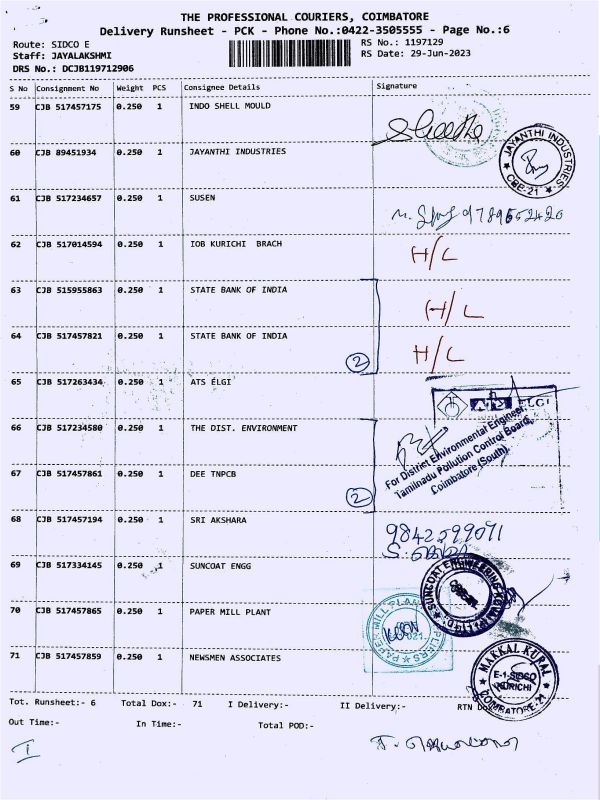 THE PROFESSIONAL COURIERS, COIMBATORE
Delivery Runsheet - PCK - Phone No.:0422-3505555 - Page No.:6
Route: SIDCO E
RS No.: 1197129
Staff: JAYALAKSHMI
RS Date: 29-Jun-2023
DRS No.: DCJB119712906
S No Consignment No Weight PCS Consignee Details Signature
59 CJB 517457175 0.250 1 INDO SHELL MOULD
60 CJB 89451934 0.250 1 JAYANTHI INDUSTRIES
JAYANTHI INDUSTRIES
CBE-21
61 CJB 517234657 0.250 1 SUSEN
62 CJB 517014594 0.250 1 IOB KURICHI BRACH
H/L
63 CJB 515955863 0.250 1 STATE BANK OF INDIA
H/L
64 CJB 517457821 0.250 1 STATE BANK OF INDIA
H/L
2
65 CJB 517263434 0.250 1 ATS ELGI
ELGI
66 CJB 517234580 0.250 1 THE DIST. ENVIRONMENT
For District Environmental Engineer,
Tamilnadu Pollution Control Board,
Coimbatore (South)
67 CJB 517457861 0.250 1 DEE TNPCB
2
68 CJB 517457194 0.250 1 SRI AKSHARA
9842599091
69 CJB 517334145 0.250 1 SUNCOAT ENGG
70 CJB 517457865 0.250 1 PAPER MILL PLANT
PAPER MILL PLANT
71 CJB 517457859 0.250 1 NEWSMEN ASSOCIATES
MAKKAL KURAL
E-1-SIDCO
KURICHI
COIMBATORE-21
Tot. Runsheet:- 6 Total Dox:- 71 I Delivery:- II Delivery:- RTN
Out Time:- In Time:- Total POD:-
I